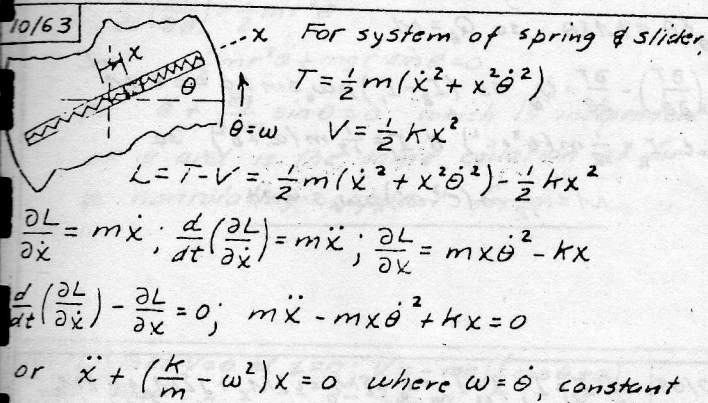 10/63
x
x
θ
θ̇=ω
For system of spring & slider,
T = ½ m(ẋ² + x²θ̇²)
V = ½ kx²
L = T-V = ½ m(ẋ² + x²θ̇²) - ½ kx²
∂L/∂ẋ = mẋ ; d/dt(∂L/∂ẋ) = mẍ ; ∂L/∂x = mxθ̇² - kx
d/dt(∂L/∂ẋ) - ∂L/∂x = 0; mẍ - mxθ̇² + kx = 0
or ẍ + (k/m - ω²)x = 0 where ω = θ̇, constant